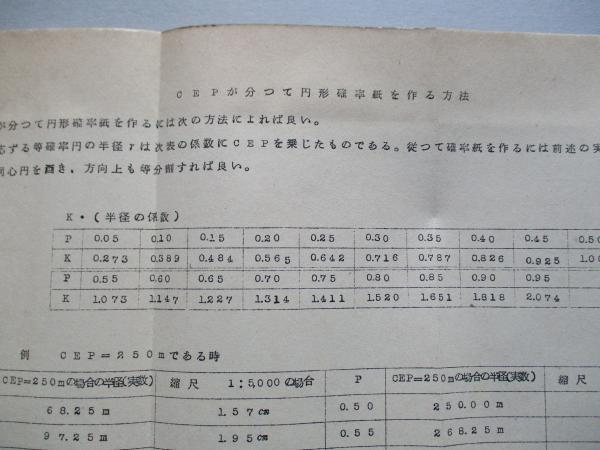 CEPが分つて円形確率紙を作る方法
が分つて円形確率紙を作るには次の方法によれば良い。
応ずる等確率円の半径rは次表の係数にCEPを乗じたものである。従つて確率紙を作るには前述の実
同心円を画き、方向上も等分割すれば良い。
K・(半径の係数)
P 0.05 0.10 0.15 0.20 0.25 0.30 0.35 0.40 0.45 0.50
K 0.273 0.389 0.484 0.565 0.642 0.716 0.787 0.826 0.925 1.00
P 0.55 0.60 0.65 0.70 0.75 0.80 0.85 0.90 0.95
K 1.073 1.147 1.227 1.314 1.411 1.520 1.651 1.818 2.074
例 CEP=250mである時
CEP=250mの場合の半径(実数) 縮尺 1:5,000の場合 P CEP=250mの場合の半径(実数) 縮尺
68.25m 1.57cm 0.50 250.00m
97.25m 1.95cm 0.55 268.25m